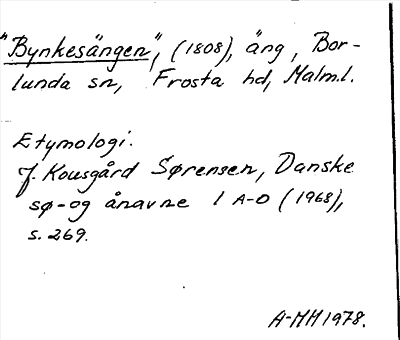 "Bynkesängen", (1808), äng, Bor-
lunda sn, Frosta hd, Malm.l.
Etymologi.
J. Kousgård Sørensen, Danske
sø- og ånavne 1 A-D (1968),
s. 269.
A-MM 1978.